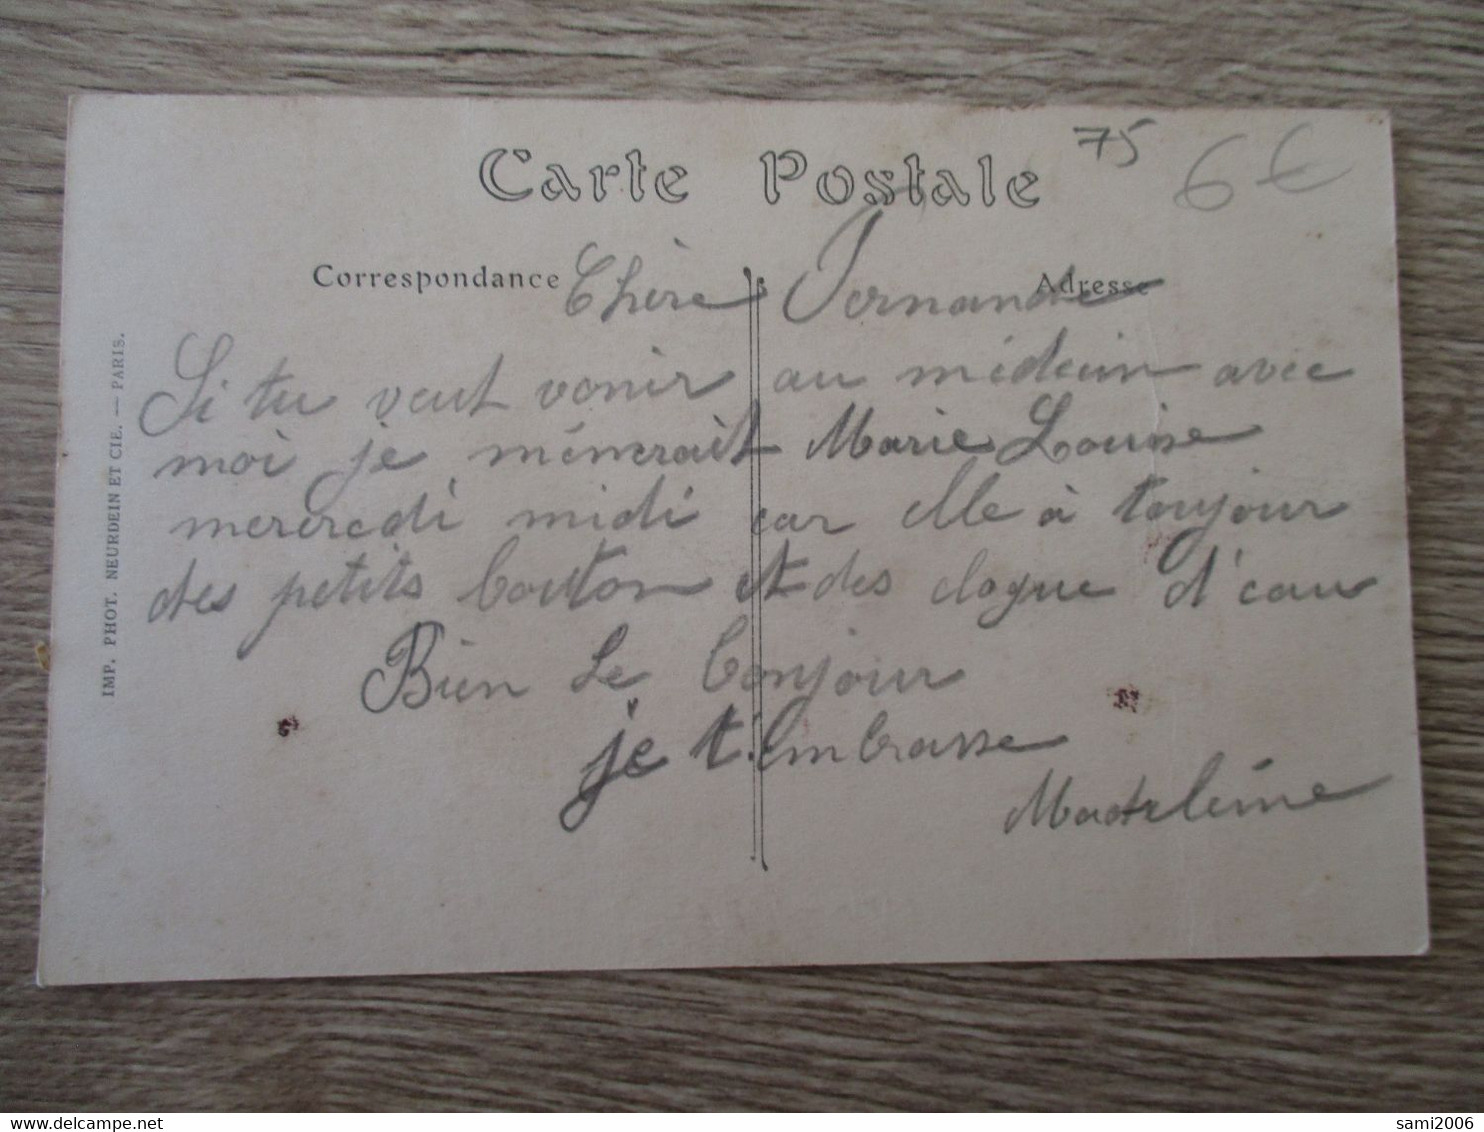 Carte Postale
75
6€
Correspondance
Adresse
Chère Fernande
Si tu veut venir au médecin avec
moi je mènerait Marie Louise
mercredi midi car elle à toujour
des petits bouton et des clogue d'eau
Bien le bonjour
je t'embrasse
Madeleine
IMP. PHOT. NEURDEIN ET CIE. — PARIS.
sami2006